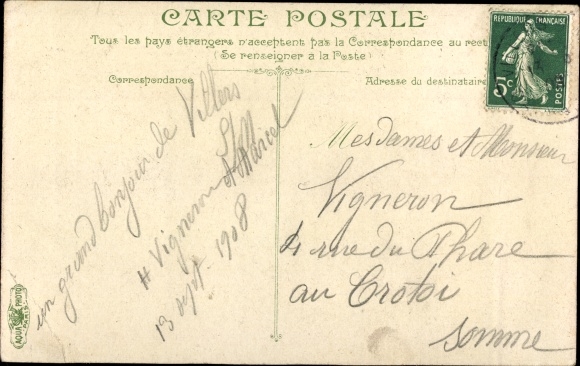 CARTE POSTALE
Tous les pays étrangers n'acceptent pas la Correspondance au recto
(Se renseigner à la Poste)
Correspondance
Adresse du destinataire
REPUBLIQUE FRANÇAISE
5c
POSTES
un grand bonjour de Villers
H Vigneron Marcel
13 sept. 1908
Mesdames et Monsieur
Vigneron
4 rue du Phare
au Crotoi
Somme
AQUA PHOTO
PARIS